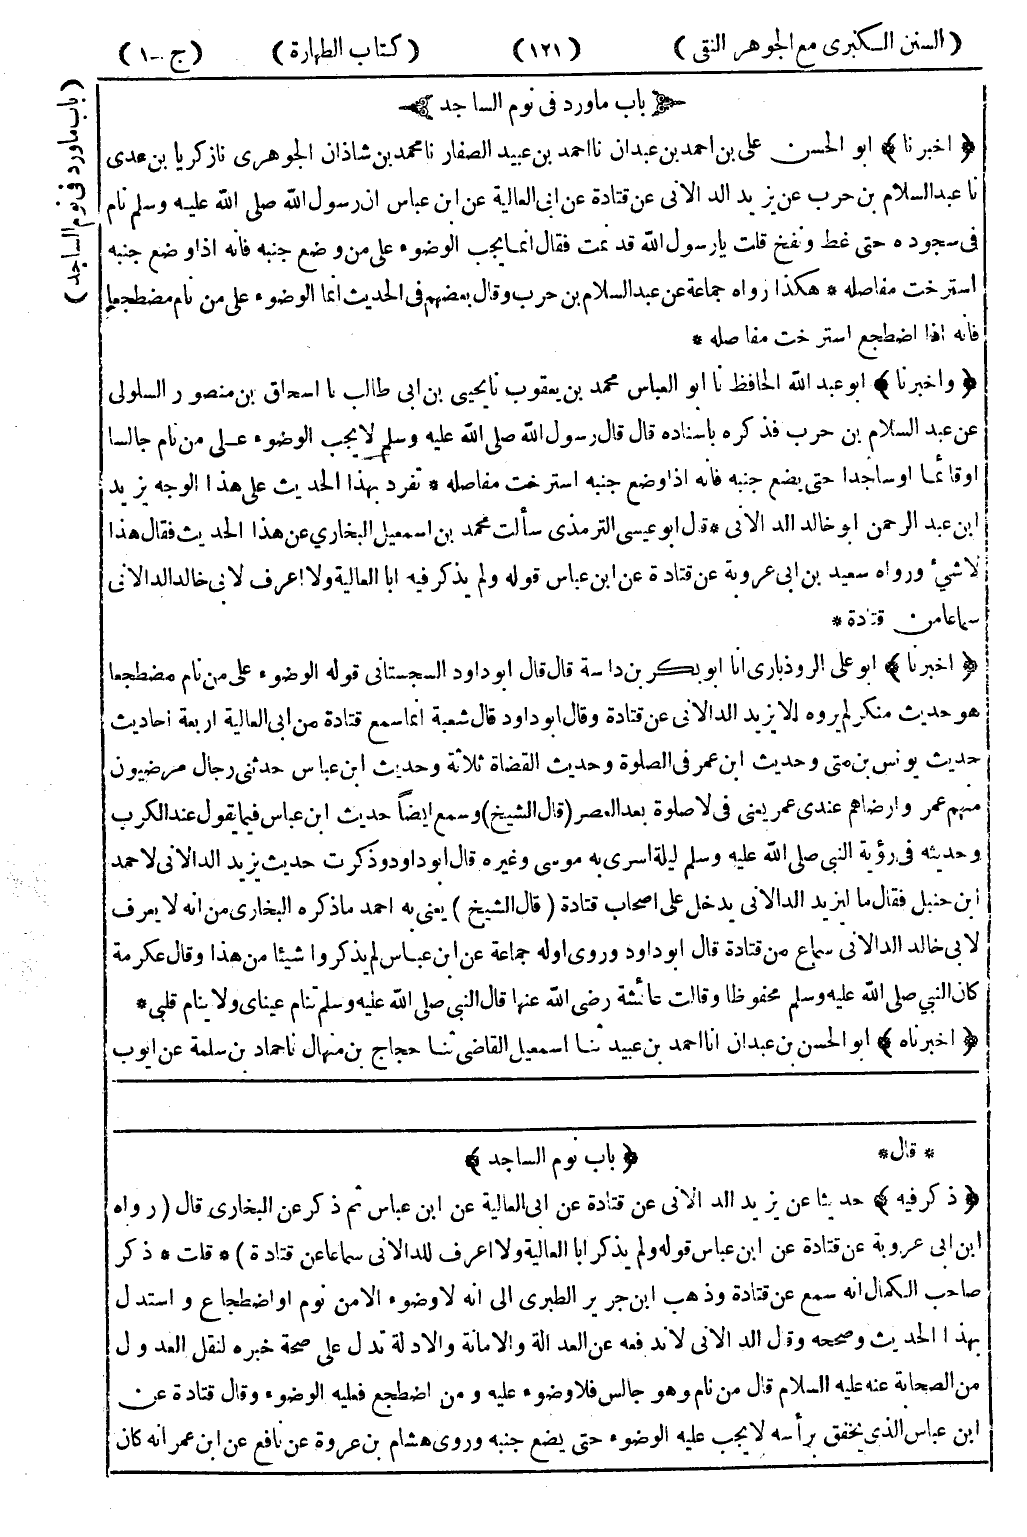 ( السنن الكبرى مع الجوهر النقى ) ( ١٢١ ) ( كتاب الطهارة ) ( ج - ١ )
( باب ماورد فى نوم الساجد )
باب ماورد فى نوم الساجد
﴿ اخبرنا ﴾ ابو الحسن على بن احمد بن عبدان نا احمد بن عبيد الصفار نا محمد بن شاذان الجوهرى نا زكريا بن عدى
نا عبدالسلام بن حرب عن يزيد الدالانى عن قتادة عن ابى العالية عن ابن عباس ان رسول الله صلى الله عليه وسلم نام
فى سجوده حتى غط ونفخ قلت يا رسول الله قد نمت فقال انما يجب الوضوء على من وضع جنبه فانه اذا وضع جنبه
استرخت مفاصله * هكذا رواه جماعة عن عبدالسلام بن حرب وقال بعضهم فى الحديث انما الوضوء على من نام مضطجعا
فانه اذا اضطجع استرخت مفاصله *
﴿ واخبرنا ﴾ ابو عبد الله الحافظ نا ابو العباس محمد بن يعقوب نا يحيى بن ابى طالب نا اسحاق بن منصور السلولى
عن عبد السلام بن حرب فذكره باسناده قال قال رسول الله صلى الله عليه وسلم لا يجب الوضوء على من نام جالسا
اوقائما اوساجدا حتى يضع جنبه فانه اذا وضع جنبه استرخت مفاصله * تفرد بهذا الحديث على هذا الوجه يزيد
ابن عبد الرحمن ابو خالد الدالانى * قال ابو عيسى الترمذى سألت محمد بن اسمعيل البخاري عن هذا الحديث فقال هذا
لاشئ ورواه سعيد بن ابى عروبة عن قتادة عن ابن عباس قوله ولم يذكر فيه ابا العالية ولا اعرف لابى خالد الدالانى
سماعا من قتادة *
﴿ اخبرنا ﴾ ابو على الروذبارى انا ابو بكر بن داسة قال قال ابو داود السجستانى قوله الوضوء على من نام مضطجعا
هو حديث منكر لم يروه الا يزيد الدالانى عن قتادة وقال ابو داود قال شعبة انما سمع قتادة من ابى العالية اربعة احاديث
حديث يونس بن متى وحديث ابن عمر فى الصلوة وحديث القضاة ثلاثة وحديث ابن عباس حدثنى رجال مرضيون
منهم عمر وارضاهم عندى عمر يعنى فى لاصلوة بعد العصر (قال الشيخ) وسمع ايضاً حديث ابن عباس فيما يقول عند الكرب
وحديثه فى رؤية النبى صلى الله عليه وسلم ليلة اسرى به موسى وغيره قال ابو داود وذكرت حديث يزيد الدالانى لاحمد
ابن حنبل فقال ما ليزيد الدالانى يدخل على اصحاب قتادة ( قال الشيخ ) يعنى به احمد ماذكره البخارى من انه لا يعرف
لابى خالد الدالانى سماع من قتادة قال ابو داود وروى اوله جماعة عن ابن عباس لم يذكروا شيئا من هذا وقال عكرمة
كان النبي صلى الله عليه وسلم محفوظا وقالت عائشة رضى الله عنها قال النبى صلى الله عليه وسلم تنام عيناى ولا ينام قلبى *
﴿ اخبرناه ﴾ ابو الحسن بن عبدان انا احمد بن عبيد ثنا اسمعيل القاضى ثنا حجاج بن منهال نا حماد بن سلمة عن ايوب
* قال * ﴿ باب نوم الساجد ﴾
﴿ ذكر فيه ﴾ حديثا عن يزيد الدالانى عن قتادة عن ابى العالية عن ابن عباس ثم ذكر عن البخارى قال ( رواه
ابن ابى عروبة عن قتادة عن ابن عباس قوله ولم يذكر ابا العالية ولا اعرف للدالانى سماعا عن قتادة ) * قلت * ذكر
صاحب الكمال انه سمع عن قتادة وذهب ابن جرير الطبرى الى انه لاوضوء الا من نوم او اضطجاع واستدل
بهذا الحديث وصححه وقال الدالانى لاندفعه عن العدالة والامانة والادلة تدل على صحة خبره لنقل العدول
من الصحابة عنه عليه السلام قال من نام وهو جالس فلاوضوء عليه ومن اضطجع فعليه الوضوء وقال قتادة عن
ابن عباس الذى يخفق برأسه لا يجب عليه الوضوء حتى يضع جنبه وروى هشام بن عروة عن نافع عن ابن عمر انه كان